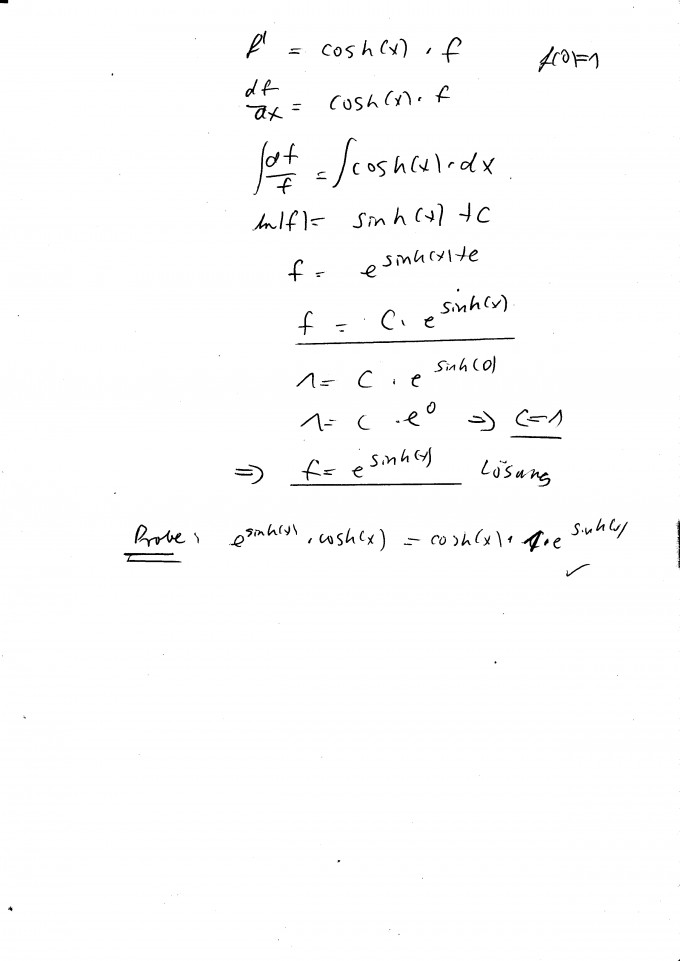 f' = cosh(x) · f f(0)=1
df/dx = cosh(x) · f
∫ df/f = ∫ cosh(x) · dx
ln|f| = sinh(x) + C
f = e^(sinh(x)+c)
f = C · e^(sinh(x))
1 = C · e^(sinh(0))
1 = C · e^0 ⇒ C=1
⇒ f = e^(sinh(x)) Lösung
Probe: e^(sinh(x)) · cosh(x) = cosh(x) · 1 · e^(sinh(x))
✓